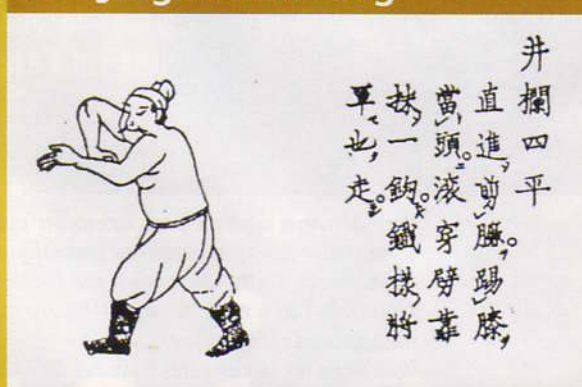 井欄四平
直進剪臁踢膝
當頭滚穿劈靠
抹一鈎鐵樣將
軍也走